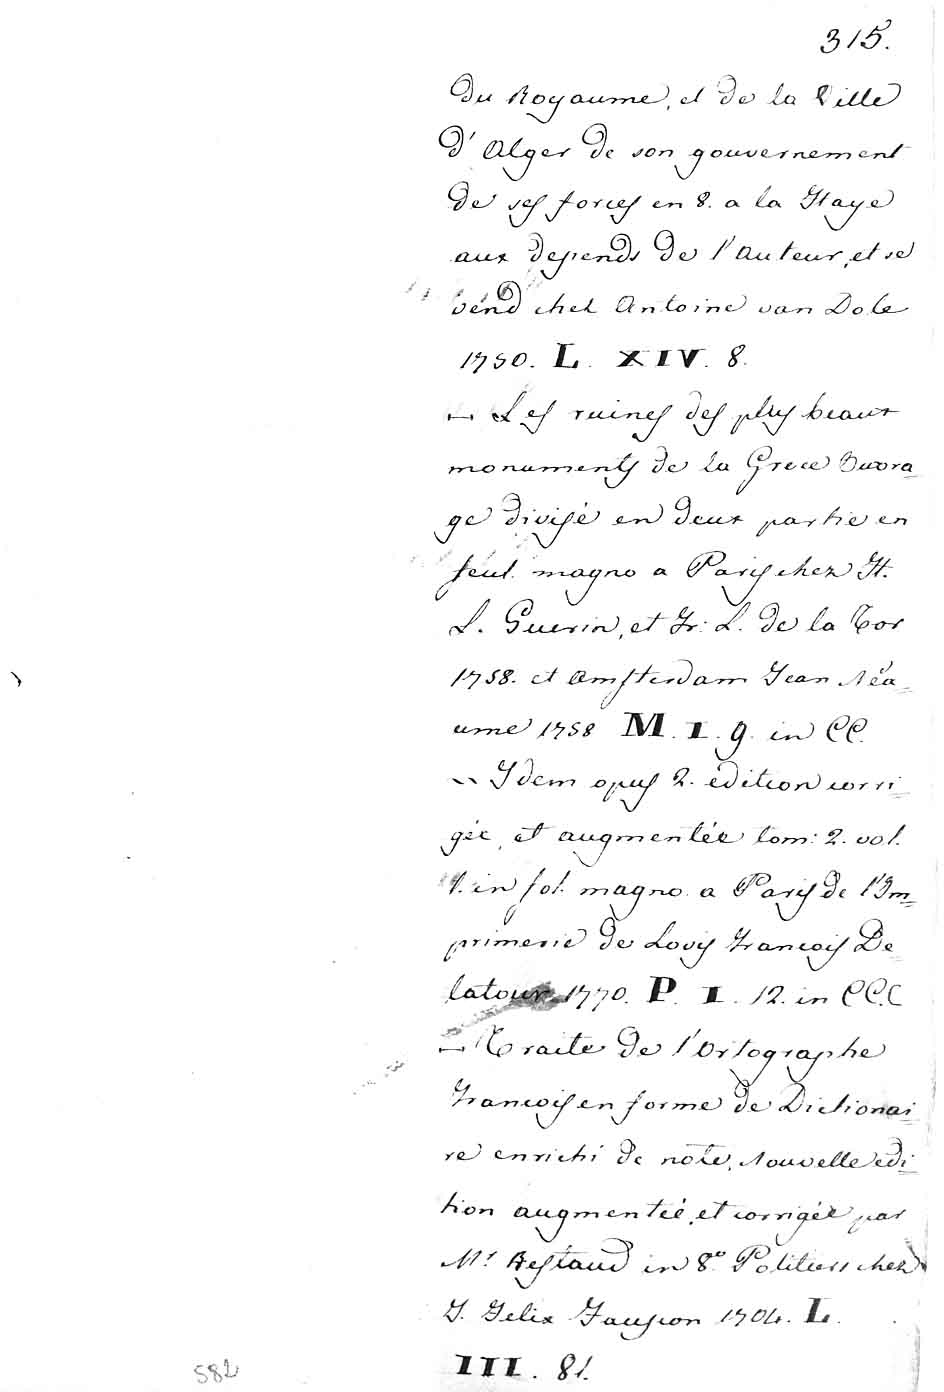 315.
du Royaume, et de la Ville
d' Alger de son gouvernement
de ses forces en 8. a la Haye
aux depends de l'Auteur, et se
vend chez Antoine van Dole
1750. L. XIV. 8.
– Les ruines des plus beaux
monuments de la Grece Buora=
ge divisé en deux partie en
feul. magno a Paris chez H.
L. Guerin, et Fr: L. de la Tor
1758. et Amsterdam Jean Néa=
ume 1758 M. I. 9. in CC.
– Idem opus 2. edition corri=
gée, et augmentée tom: 2. vol.
1. in fol. magno a Paris de l'Im=
primerie de Lovis Francois De=
latour 1770. P. I. 12. in CCC
– Traite de l'Ortographe
Francois en forme de Dictionai=
re enrichi de note, Nouvelle edi=
tion augmentée, et corrigée par
Mr Restaud in 8º Potitiers chez
J. Felix Faucon 1704. L.
III. 81.
582